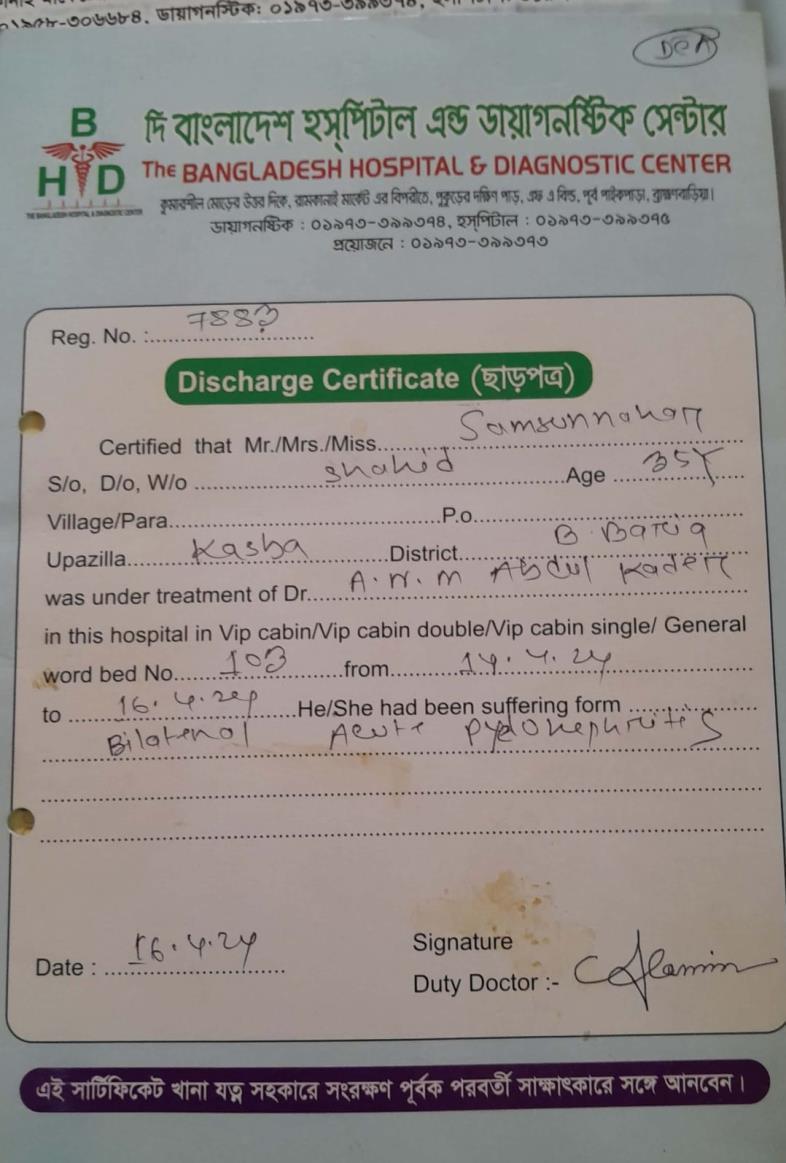 ০১৯৭৮-৩০৬৬৮৪, ডায়াগনস্টিক: ০১৯৭৩-৩৯৯৩৭৪,
B
HD
দি বাংলাদেশ হস্পিটাল এন্ড ডায়াগনষ্টিক সেন্টার
The BANGLADESH HOSPITAL & DIAGNOSTIC CENTER
THE BANGLADESH HOSPITAL & DIAGNOSTIC CENTER
কুমারশীল মোড়ের উত্তর দিকে, রামকানাই মার্কেট এর বিপরীতে, পুকুরের দক্ষিণ পাড়, এফ এ বিল্ড, পূর্ব পাইকপাড়া, ব্রাহ্মণবাড়িয়া।
ডায়াগনষ্টিক : ০১৯৭৩-৩৯৯৩৭৪, হস্পিটাল : ০১৯৭৩-৩৯৯৩৭৫
প্রয়োজনে : ০১৯৭৩-৩৯৯৩৭৩
Reg. No. : 7883
Discharge Certificate (ছাড়পত্র)
Certified that Mr./Mrs./Miss. Samsunnahar
S/o, D/o, W/o Shahid Age 35Y
Village/Para. P.o.
Upazilla. Kasba District. B. Baria
was under treatment of Dr. A.N.M Abdul Kader
in this hospital in Vip cabin/Vip cabin double/Vip cabin single/ General
word bed No. 103 from. 14.4.24
to 16.4.24 He/She had been suffering form
Bilateral Acute Pyelonephritis
Date : 16.4.24
Signature
Duty Doctor :- Alamin
এই সার্টিফিকেট খানা যত্ন সহকারে সংরক্ষণ পূর্বক পরবর্তী সাক্ষাৎকারে সঙ্গে আনবেন।